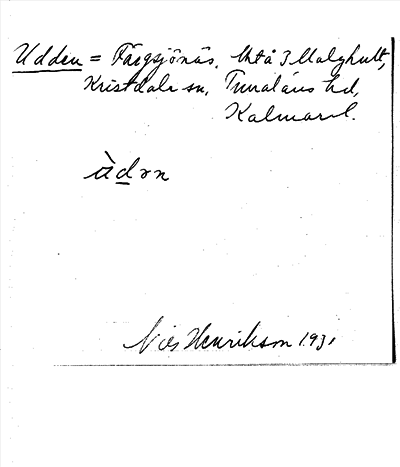 Udden = Färgsjönäs, Utå 3 Malghult,
Kristdala sn, Tunaläns hd,
Kalmar l.
ùdәn
Nils Henrikson 1931